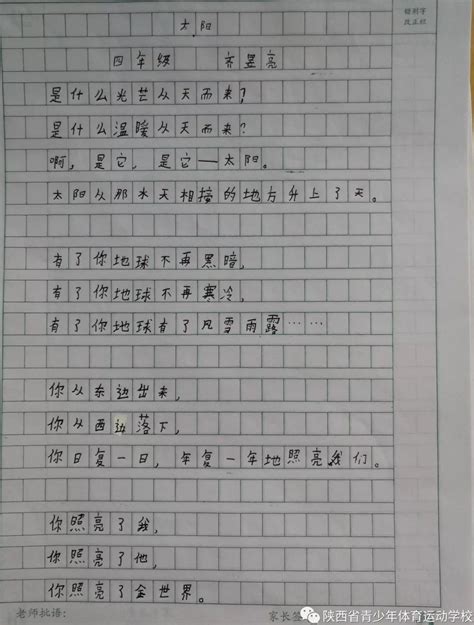 错别字
改正栏
太阳
四年级 齐昱亮
是什么光芒从天而来？
是什么温暖从天而来？
啊，是它，是它——太阳。
太阳从那水天相接的地方升上了天。
有了你地球不再黑暗，
有了你地球不再寒冷，
有了你地球有了风雪雨露……
你从东边出来，
你从西边落下，
你日复一日，年复一年地照亮我们。
你照亮了我，
你照亮了他，
你照亮了全世界。
老师批语： 家长签
陕西省青少年体育运动学校